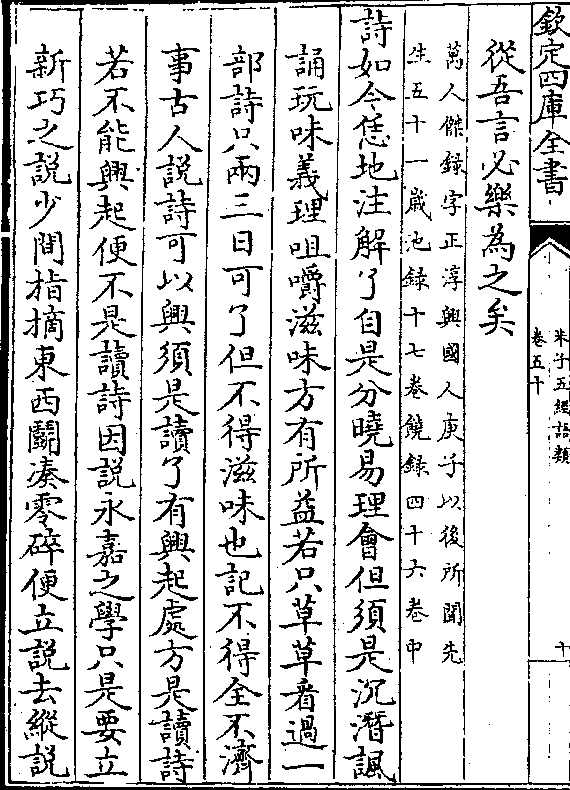 欽定四庫全書
朱子五經語類
卷五十
十
從吾言必樂為之矣
萬人傑録字正淳興國人庚子以後所聞先
生五十一歲池録十七卷饒録四十六卷中
詩如今恁地注解了自是分曉易理會但須是沉潛諷
誦玩味義理咀嚼滋味方有所益若只草草看過一
部詩只兩三日可了但不得滋味也記不得全不濟
事古人説詩可以興須是讀了有興起處方是讀詩
若不能興起便不是讀詩因説永嘉之學只是要立
新巧之説少間指摘東西鬭湊零碎便立説去縱説